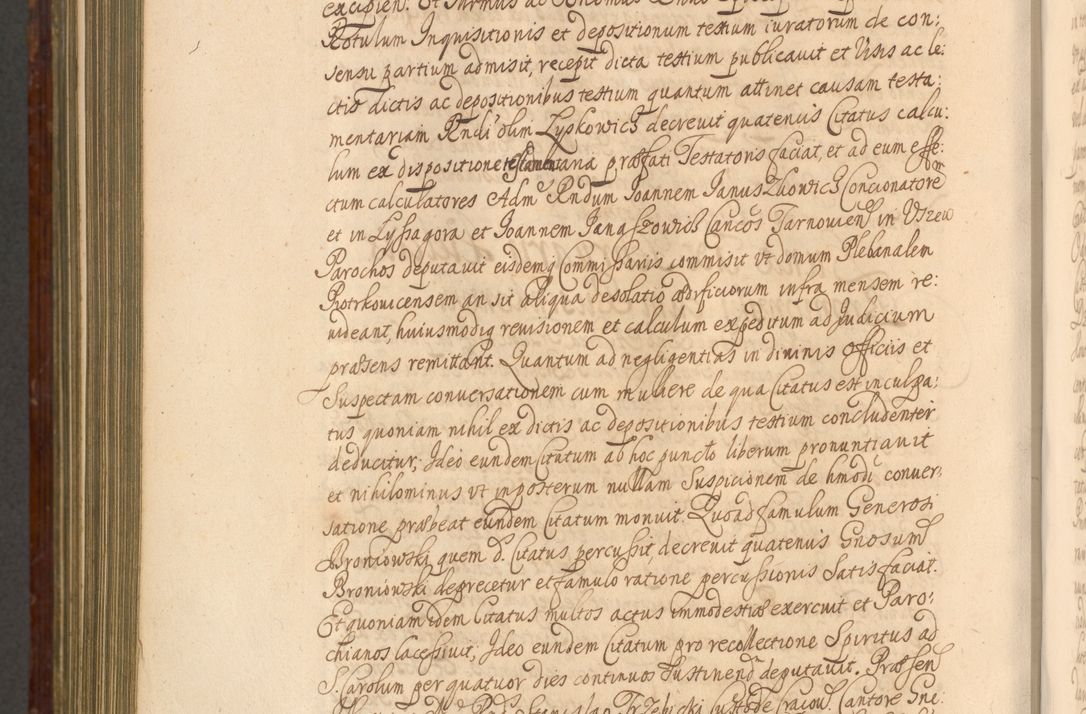 Rotulum Inquisitionis et depositionum testium iuratorum de con:
sensu partium admisit, recepit dicta testium publicauit et Visis ac le:
ctis dictis ac depositionibus testium quantum attinet causam testa:
mentariam Rndi olim Lyskowicz decreuit quatenus Citatus calcu:
lum ex dispositione testamentaria præfati Testatoris faciat, et ad eum effe:
ctum calculatores Adm Rndum Joannem Januszkowicz Concionatorem
et in Lyssagora et Joannem Janaszowicz Cancos Tarnouien in Vszew
Parochos deputauit eisdemq Commissariis commisit vt domum Plebanalem
Piotrkouicensem an sit aliqua desolatio ædificiorum infra mensem re:
uideant, huiusmodiq reuisionem et calculum expeditum ad Judicium
præsens remittant. Quantum ad negligentias in diuinis Officiis et
Suspectam conuersationem cum muliere de qua Citatus est inculpa:
tus quoniam nihil ex dictis ac depositionibus testium concludenter
deducitur, Ideo eundem Citatum ab hoc puncto liberum pronuntiauit
et nihilominus vt in posterum nullam Suspicionem de hmodi conuer:
satione præbeat eundem Citatum monuit. Quoad famulum Generosi
Broniowski quem d. Citatus percussit, decreuit quatenus Gnosum
Broniowski deprecetur et famulo ratione percussionis Satisfaciat.
Et quoniam idem Citatus multos actus immodestiæ exercuit et Paro:
chianos lacessiuit, Ideo eundem Citatum pro recollectione Spiritus ad
S. Carolum per quatuor dies continuos sustinend deputauit. Præsen
Stanislao Trzebicki Custode Cracou. Cantore Gne: